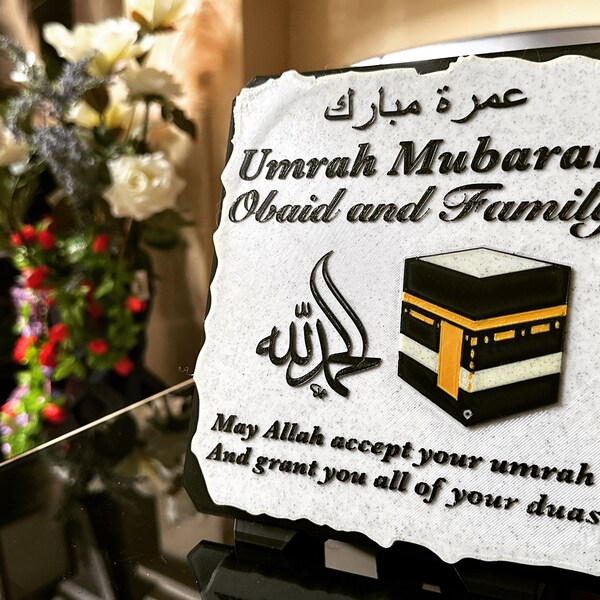 عمرة مبارك
Umrah Mubarak
Obaid and Family
الحمد لله
May Allah accept your umrah
And grant you all of your duas